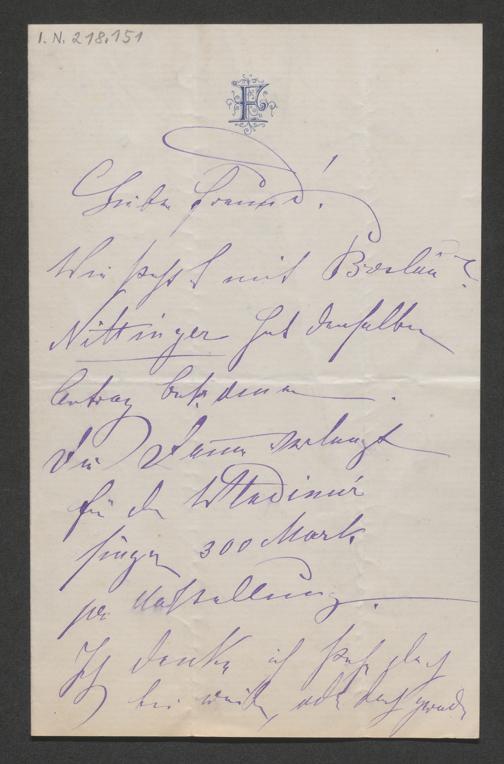 I. N. 218.151
F
Lieber Freund!
Wie steht's mit Breslau?
Nittinger hat denselben
Antrag bekommen.
Die Dame verlangt
für den Wladimir
singen 300 Mark
per Vorstellung.
Ich denke ich stehe
bei